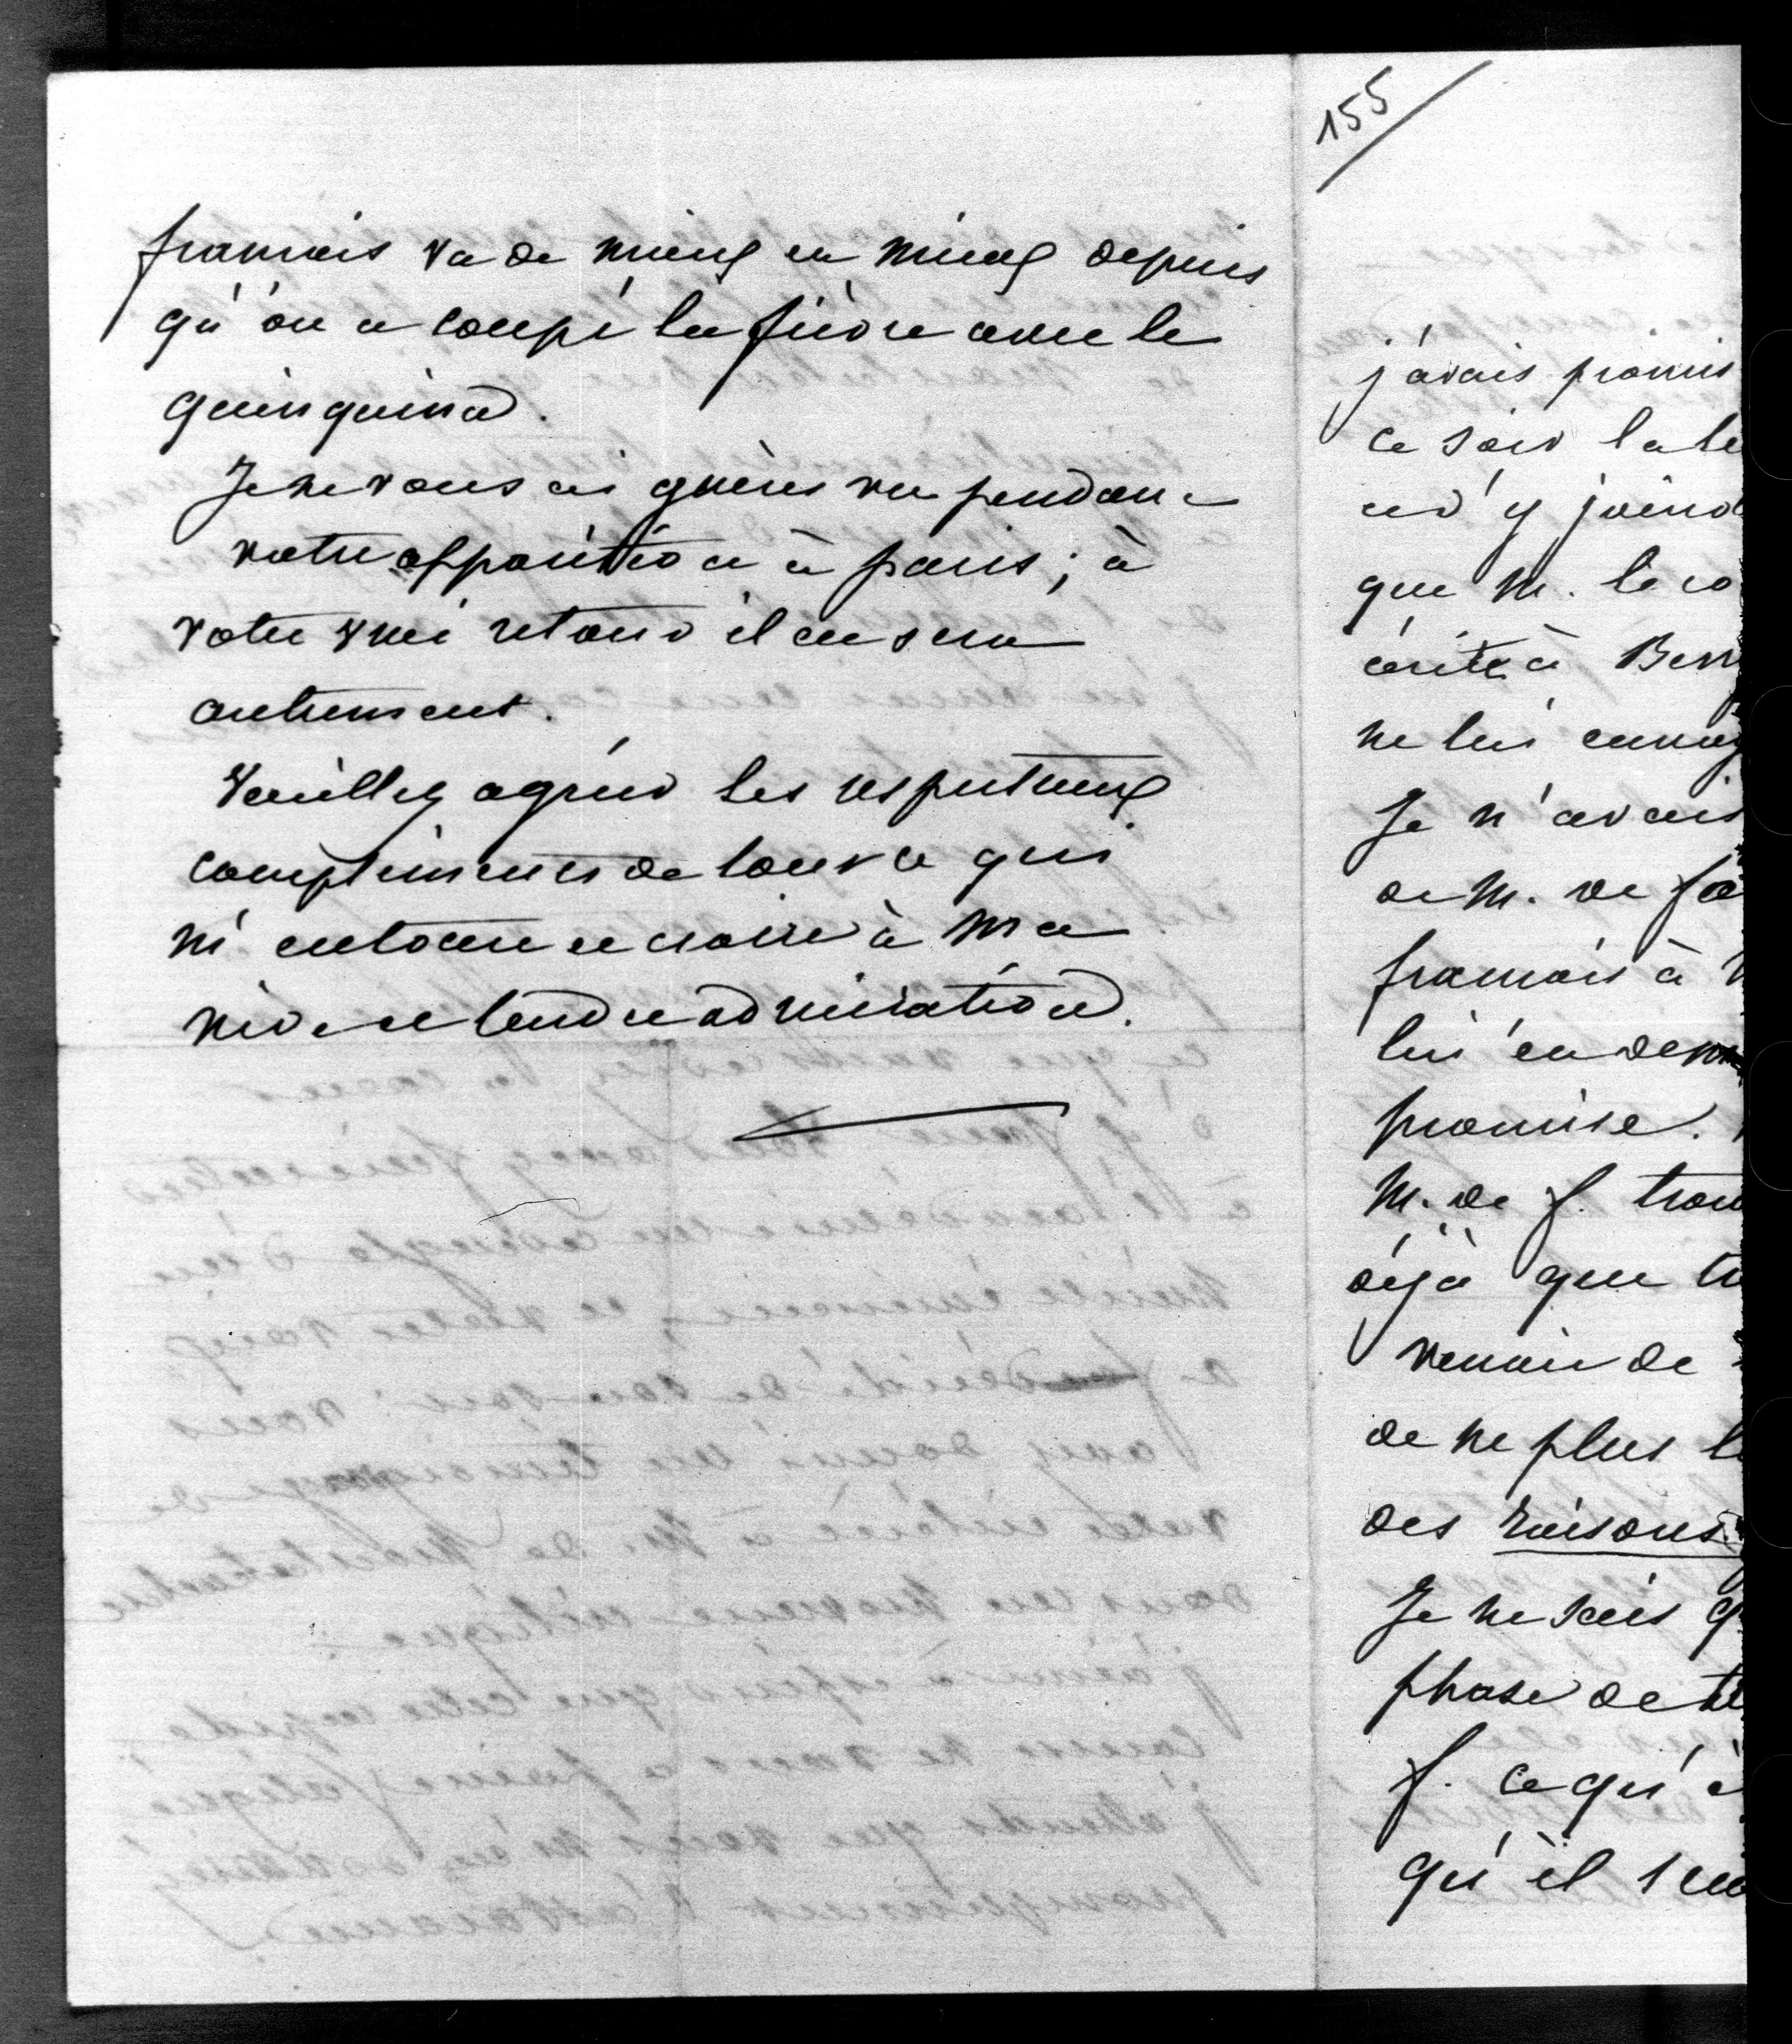 francois va de mieux en mieux depuis
qu'on a coupé la fièvre avec le
quinquina.
Je ne vous ai guères vu pendant
votre apparition à paris; à
votre vrai retour il en sera
autrement.
Veuillez agréer les respectueux
compliments de tout ce qui
m'entoure et croire à ma
vive et tendre admiration.
155
j'avais promis
ce soir la le
et d'y joind
que M. le co
écrite à Berr
ne lui envoy
Je n'avais
de M. de fa
francois à
lui en dem
promise.
M. de f. trou
déjà que tu
venais de
de ne plus l
des raisons
Je ne sais q
phase de
f. ce qu'
qu'il